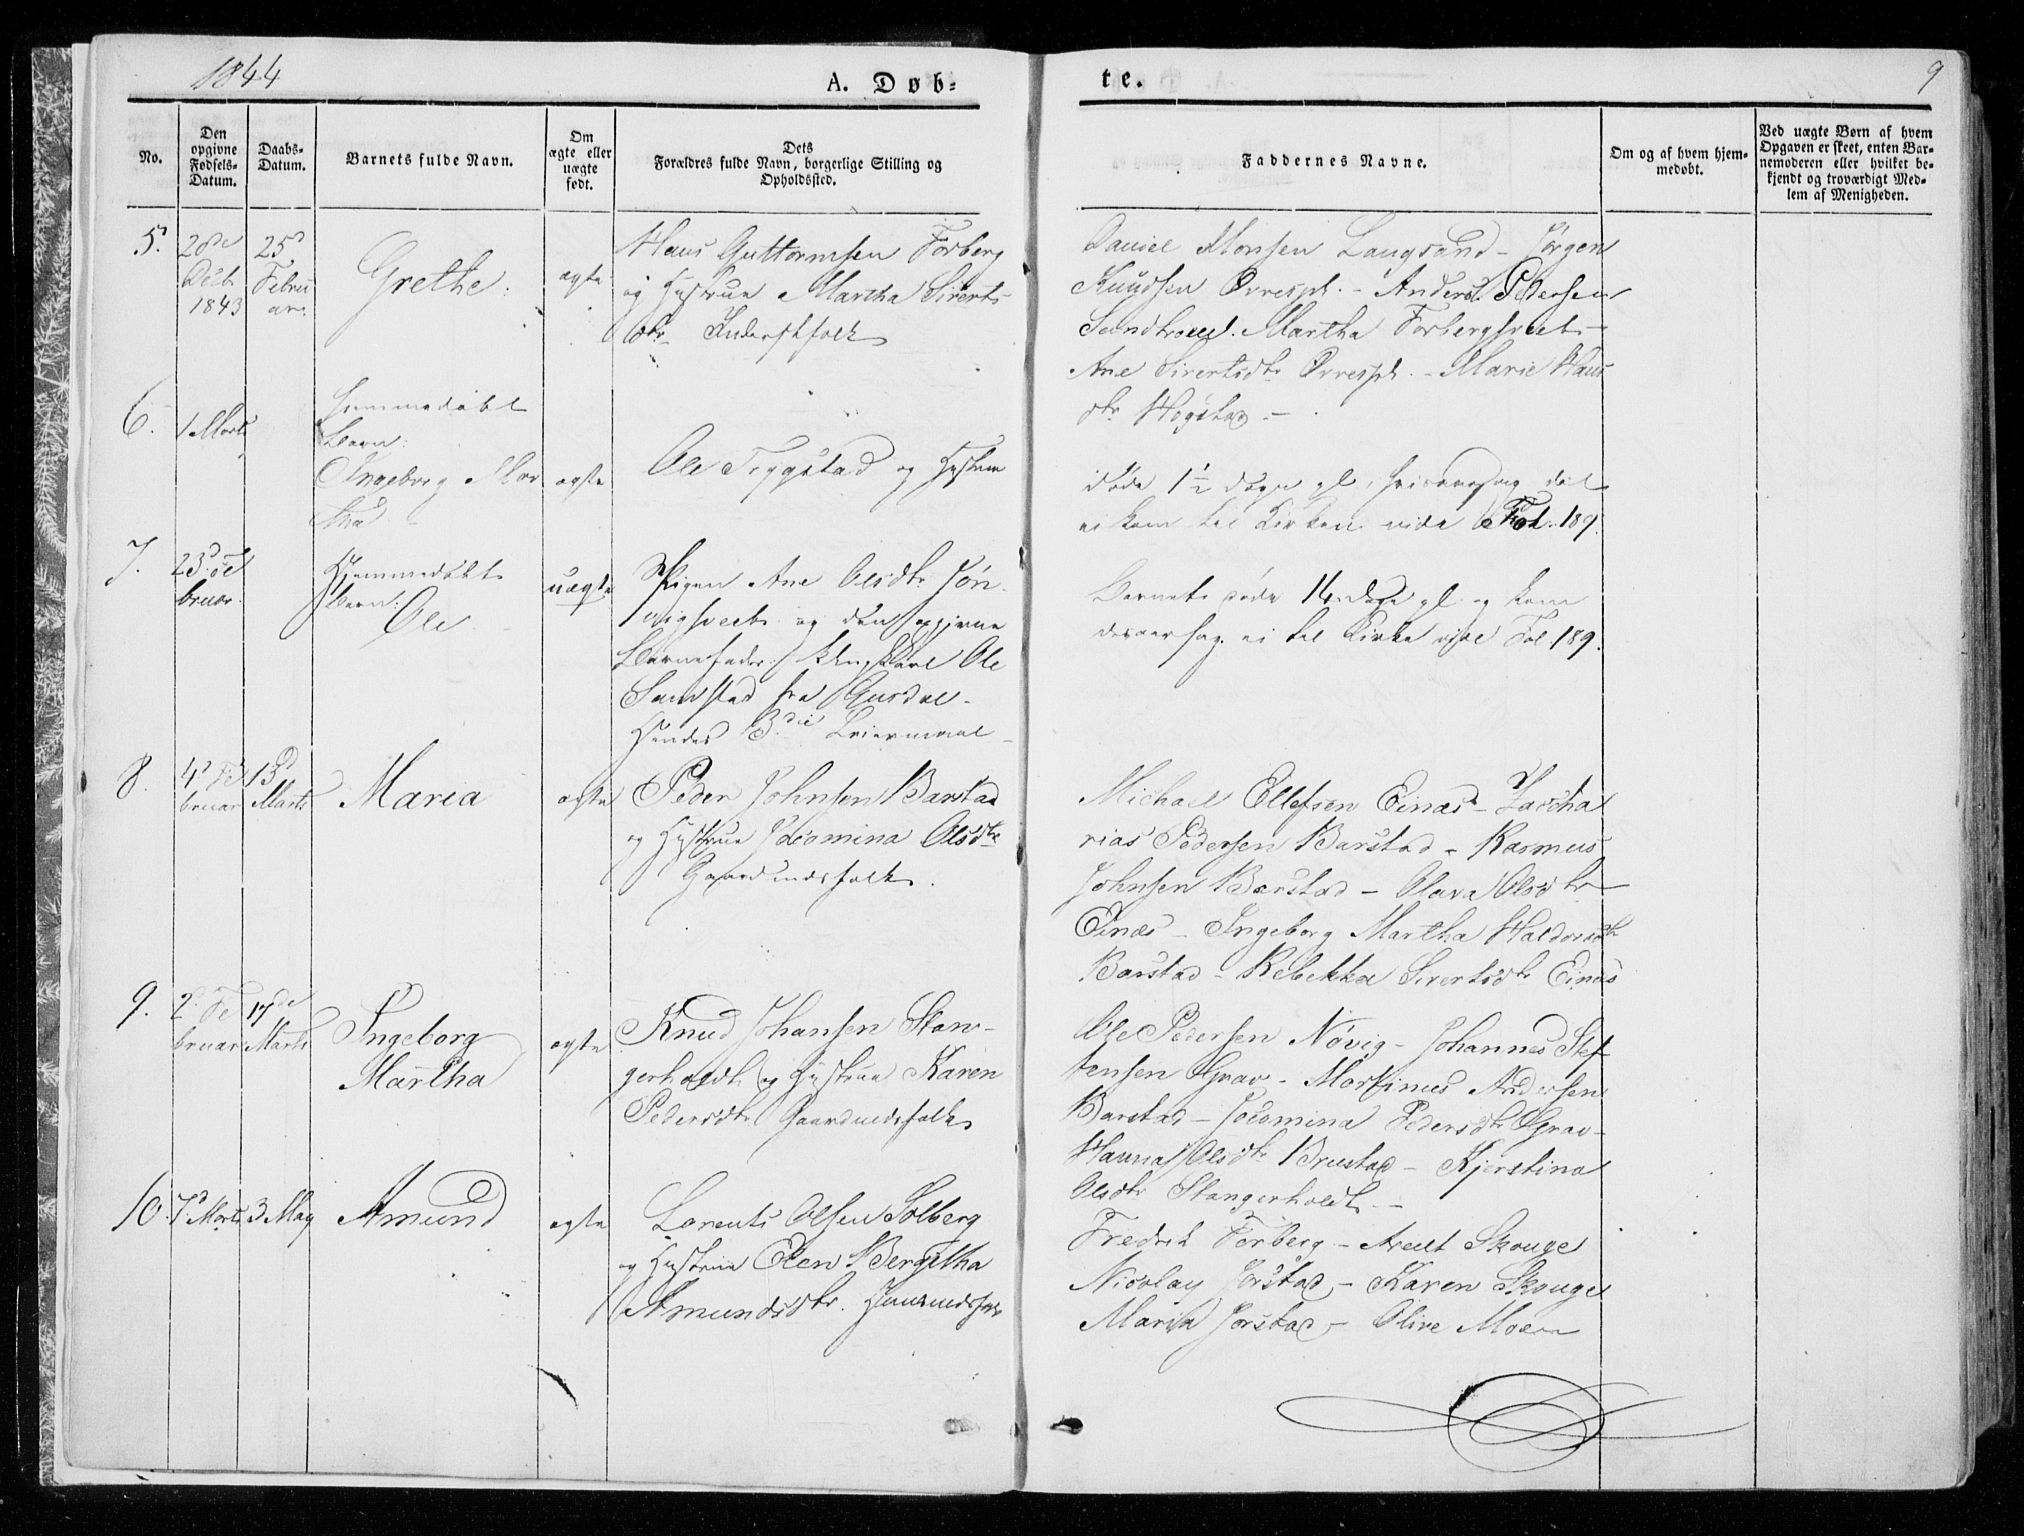 1844
A. Døb-
te.
9
No.
Den
opgivne
Fødsels-
Datum.
Daabs-
Datum.
Barnets fulde Navn.
Om
ægte eller
uægte
født.
Dets
Forældres fulde Navn, borgerlige Stilling og
Opholdssted.
Faddernes Navne.
Om og af hvem hjem-
medøbt.
Ved uægte Børn af hvem
Opgaven er skeet, enten Bar-
nemoderen eller hvilket be-
kjendt og troværdigt Med-
lem af Menigheden.
5.
28de
Decbr
1843
25d
Febru
ar.
Grethe
ægte
Hans Guttormsen Forberg
og Hustrue Martha Siverts
dtr Inderstfolk
Daniel Monsen Langsand - Jørgen
Knudsen Øvrespl. - Anders Pedersen
Martha Forbergsveet -
Ane Sivertsdtr Øvrespl. - Marie Hans
dtr Hogstad -
6.
1 Marts
hjemmedøbt
Barn:
Ingeborg Mar
tha
ægte
Ole Trygstad og Hustrue
døde 1½ dage gl. hvisaarsag det
ei kom til Kirken vide Fol. 189.
7.
23d Fe
bruar.
Hjemmedøbt
Barn:
Ole
uægte
Pigen Ane Olsdtr Jøn
vigsveet og den opgivne
Barnefader Ole
Samstad fra
Hendes 3die Leiermaal
Barnet døde 14 dage gl. og kom
desaarsag ei til Kirke vide Fol. 189.
8.
4d Fe
bruar
13d
Marts
Maria
ægte
Peder Johnsen Barstad
og Hustrue Jocomina Olsdtr
Gaardmdsfolk.
Michael Ellefsen Einæs - Zacha
rias Pedersen Barstad - Rasmus
Johnsen Barstad - Olava Olsdtr
Einæs - Ingeborg Martha Haldorsdtr
Barstad - Rebekka Sivertsdtr Einæs
9.
2 Fe
bruar
17de
Marts
Ingeborg
Martha
ægte
Knud Johansen Stan-
gerholdt og Hustrue Karen
Pedersdtr Gaardmdsfolk
Ole Pedersen Nøvig - Johannes Stef
fensen Grav - Mortinus Andersen
Barstad - Jocomina Pedersdtr Grav -
Hanna Olsdtr Brustad - Kjerstina
Olsdtr Stangerholdt -
10.
7d Marts
3 May
Amund
ægte
Lorents Olsen Solberg
og Hustrue Elen Bergitha
Amundsdtr. Huusmdsfolk
Fredrik Forberg - Arent Skouge
Nicolay Jørstad - Karen Skouge
Maria Jørstad - Olive Moen